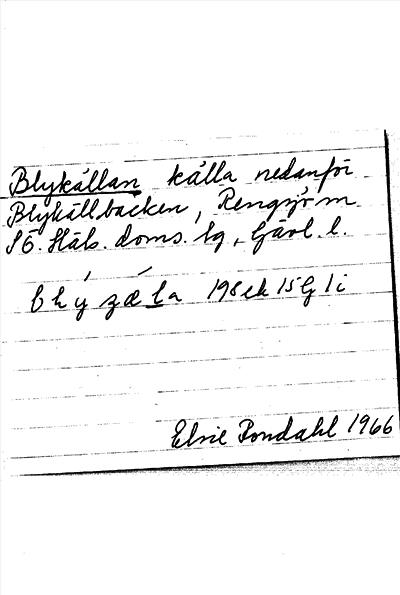 Blykällan källa nedanför
Blykällbacken, Rengsjö m
SÖ. Häls. doms. lg, Gävl. l.
198ek 15G 1i
Elsie Bondahl 1966